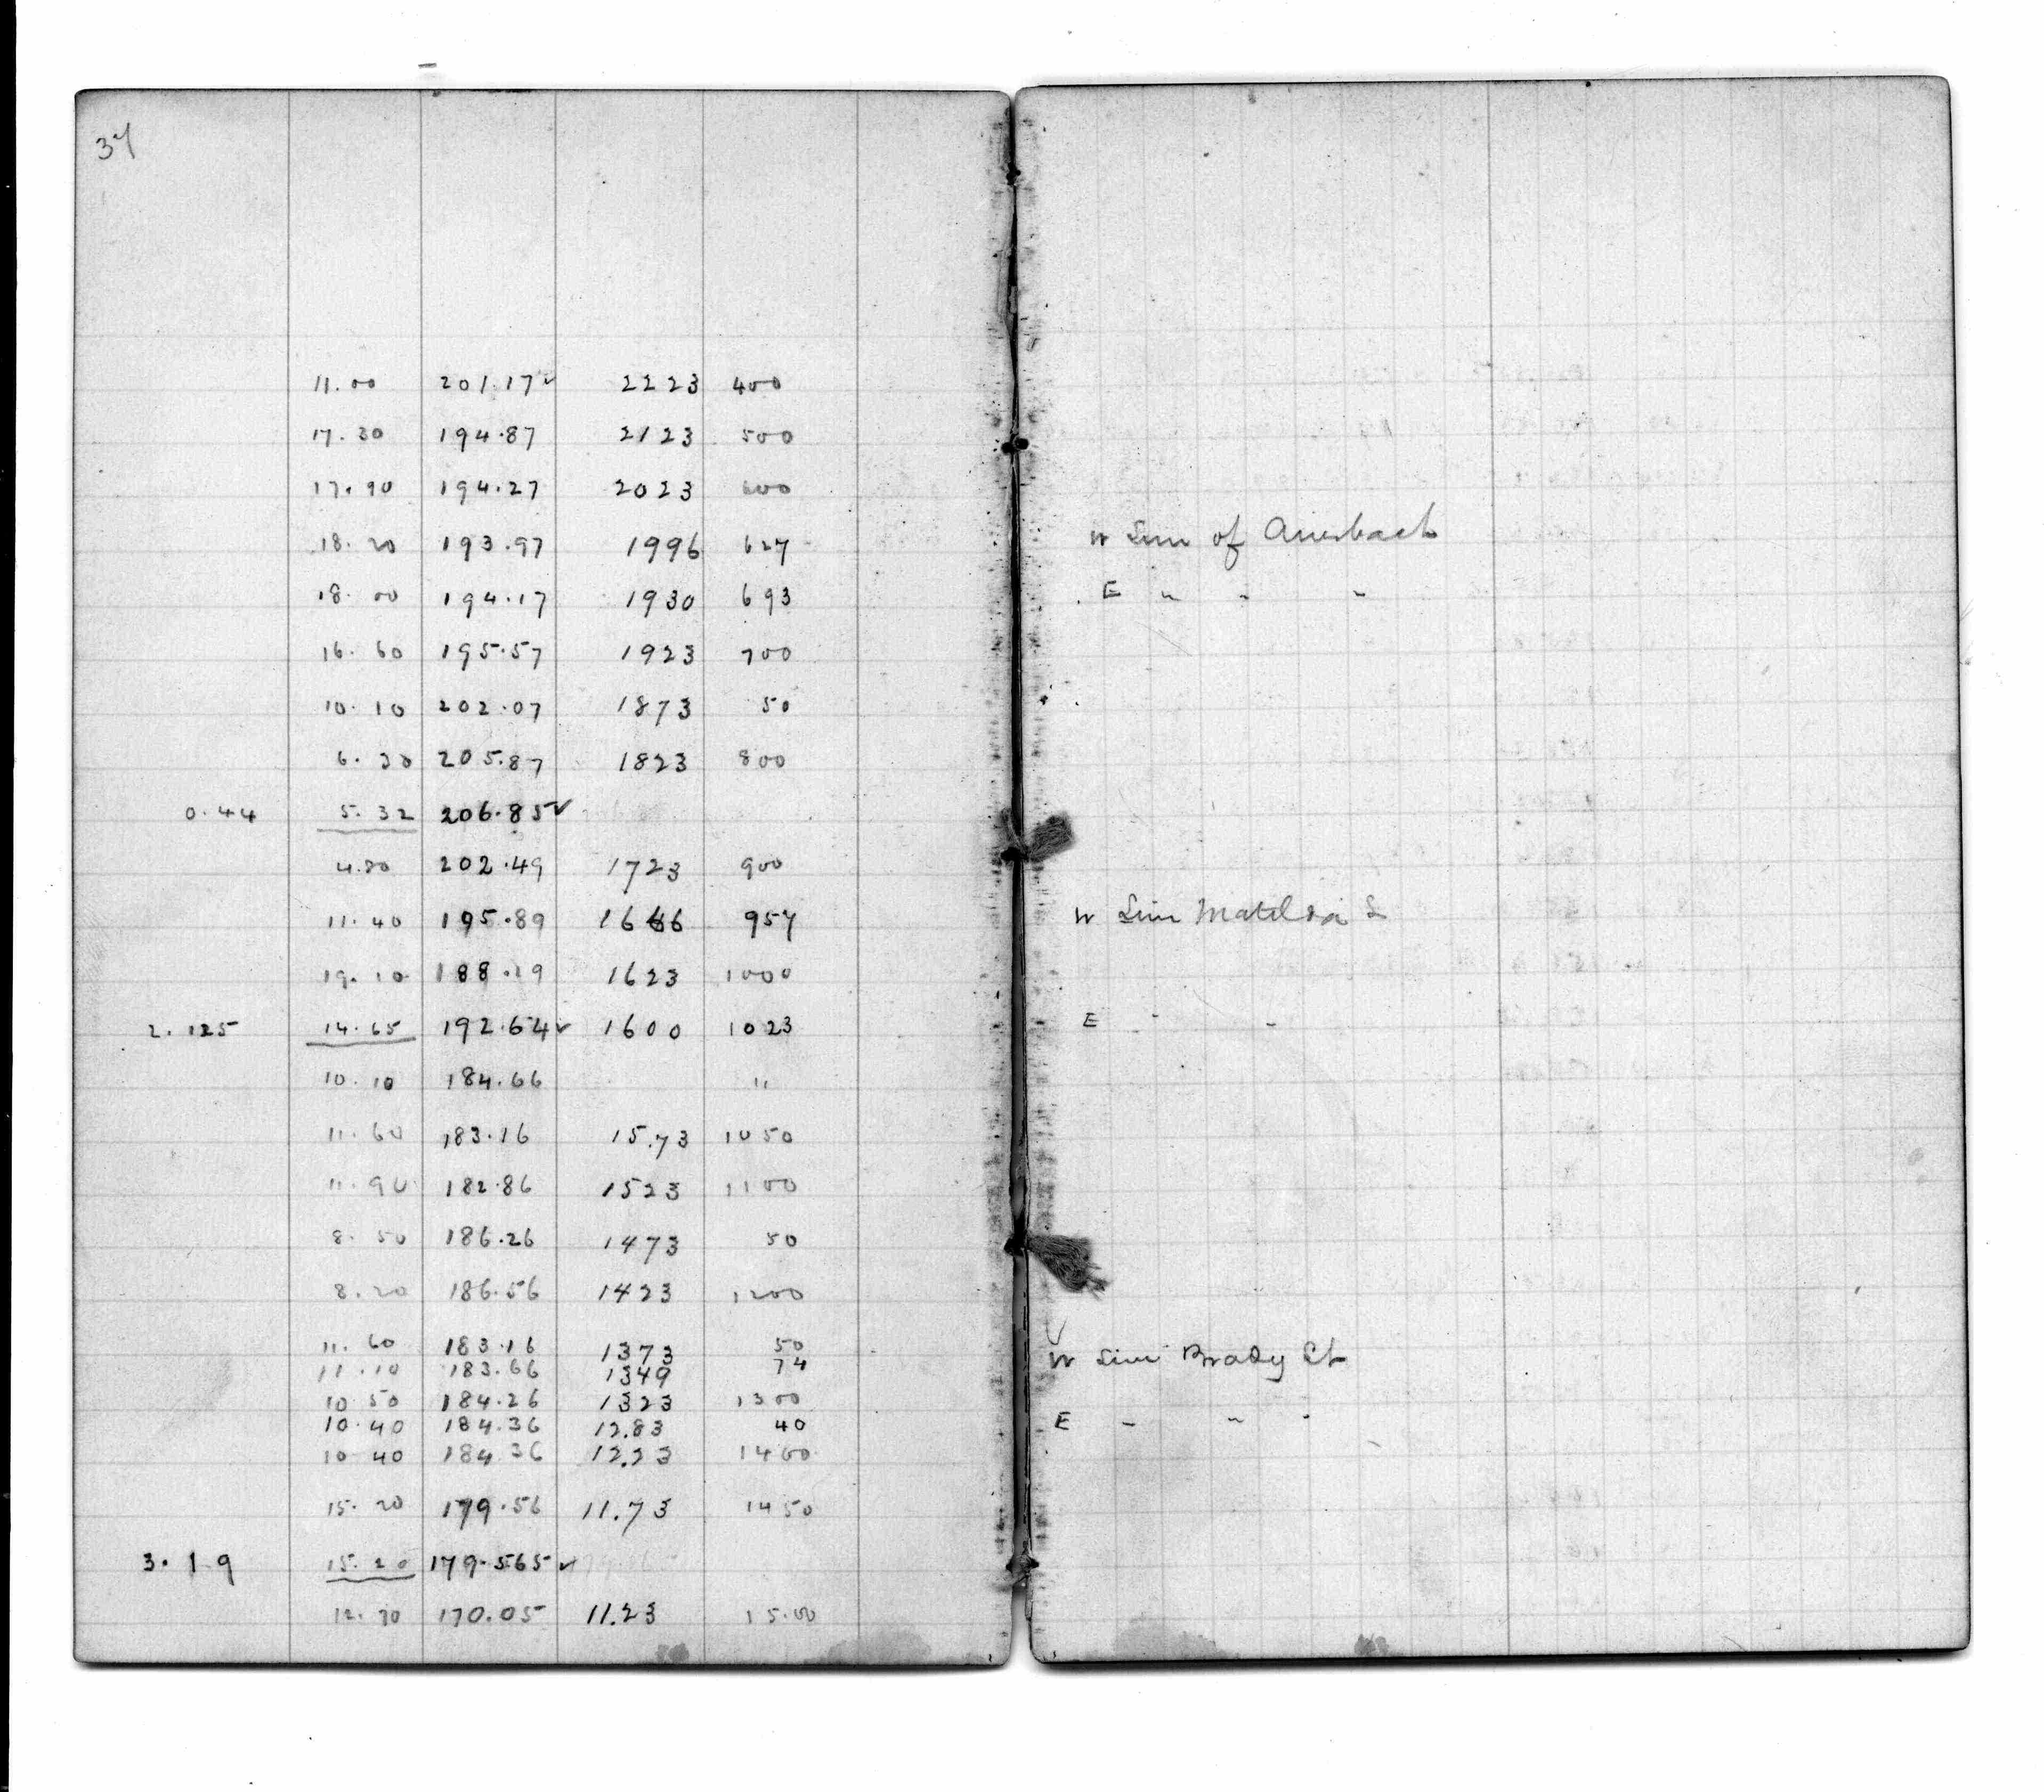 37
11.00 201.17✓ 2223 400
17.30 194.87 2123 500
17.90 194.27 2023 600
18.20 193.97 1996 627 W Line of Auerbach
18.00 194.17 1930 693 E " " "
16.60 195.57 1923 700
10.10 202.07 1873 50
6.30 205.87 1823 800
0.44 5.32 206.85✓
4.80 202.49 1723 900
11.40 195.89 1666 957 W Line Matilda S
19.10 188.19 1623 1000
2.125 14.65 192.64✓ 1600 1023 E " "
10.10 184.66 "
11.60 183.16 15.73 1050
11.90 182.86 1523 1100
8.50 186.26 1473 50
8.20 186.56 1423 1200
11.60 183.16 1373 50
11.10 183.66 1349 74 W Line Brady St
10.50 184.26 1323 1300
10.40 184.36 12.83 40 E " " "
10.40 184.36 12.23 1400
15.20 179.56 11.73 1450
3.19 15.20 179.565✓
12.30 170.05 11.23 15.00